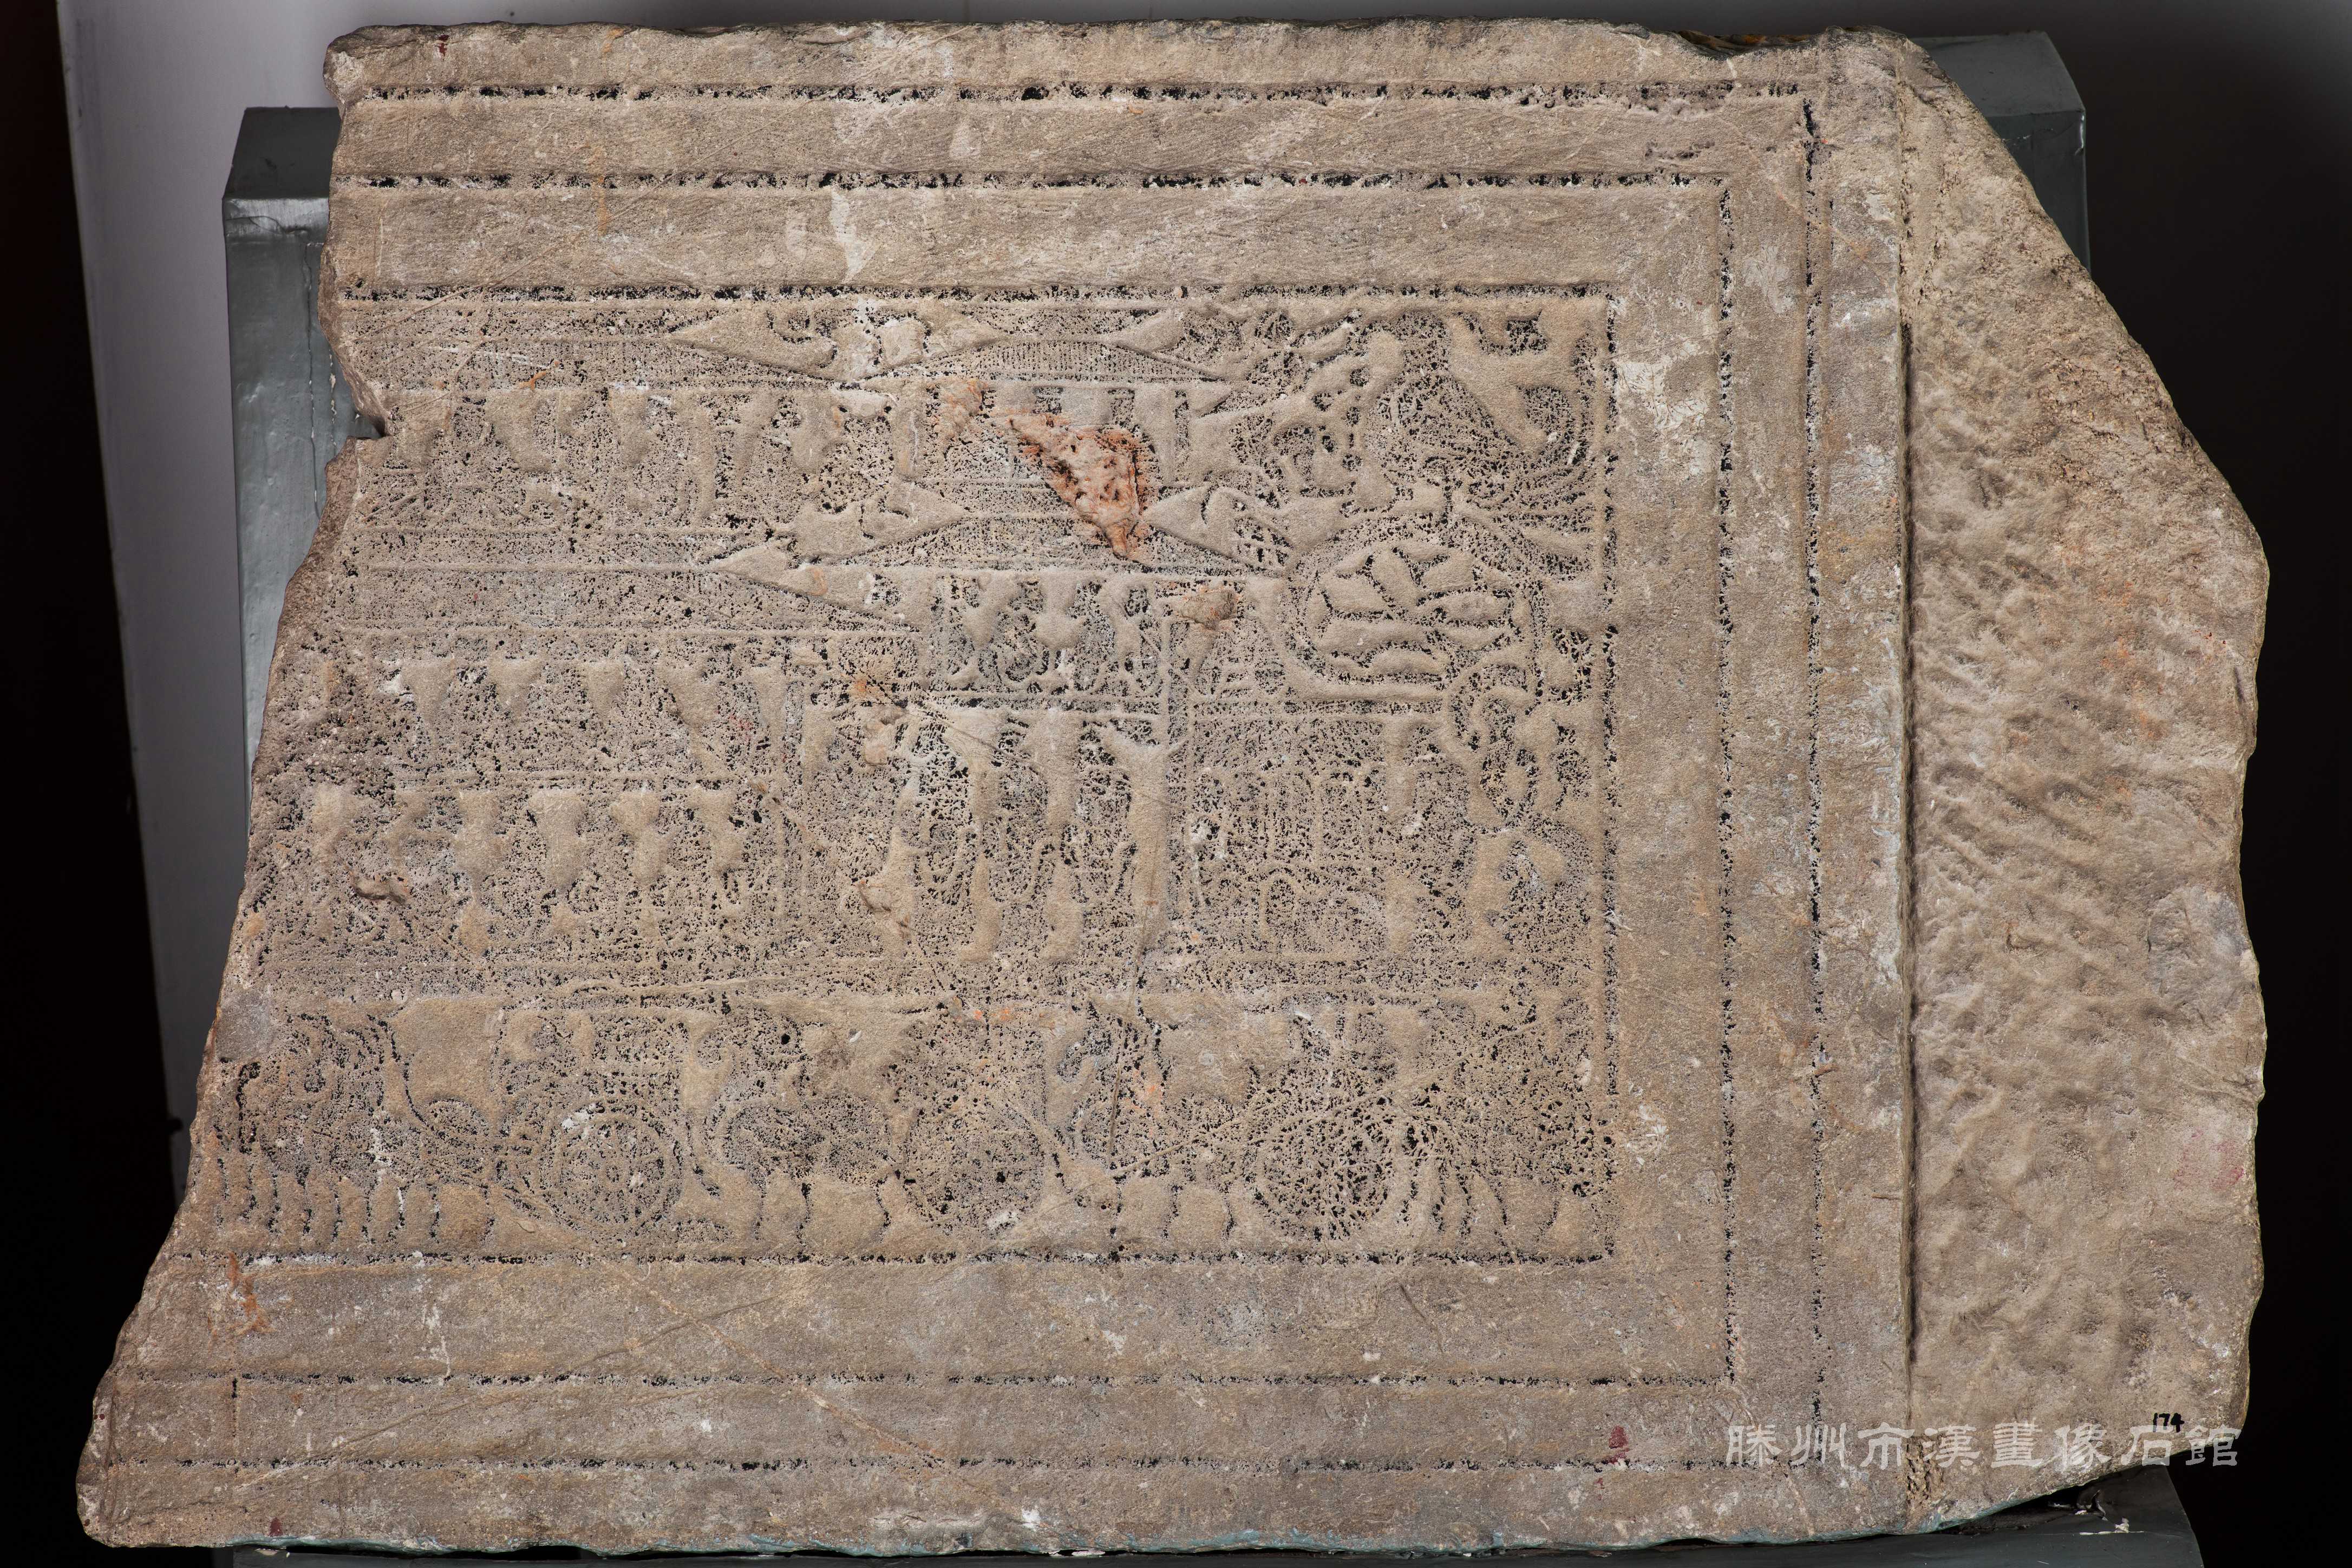 174
滕州市漢畫像石館